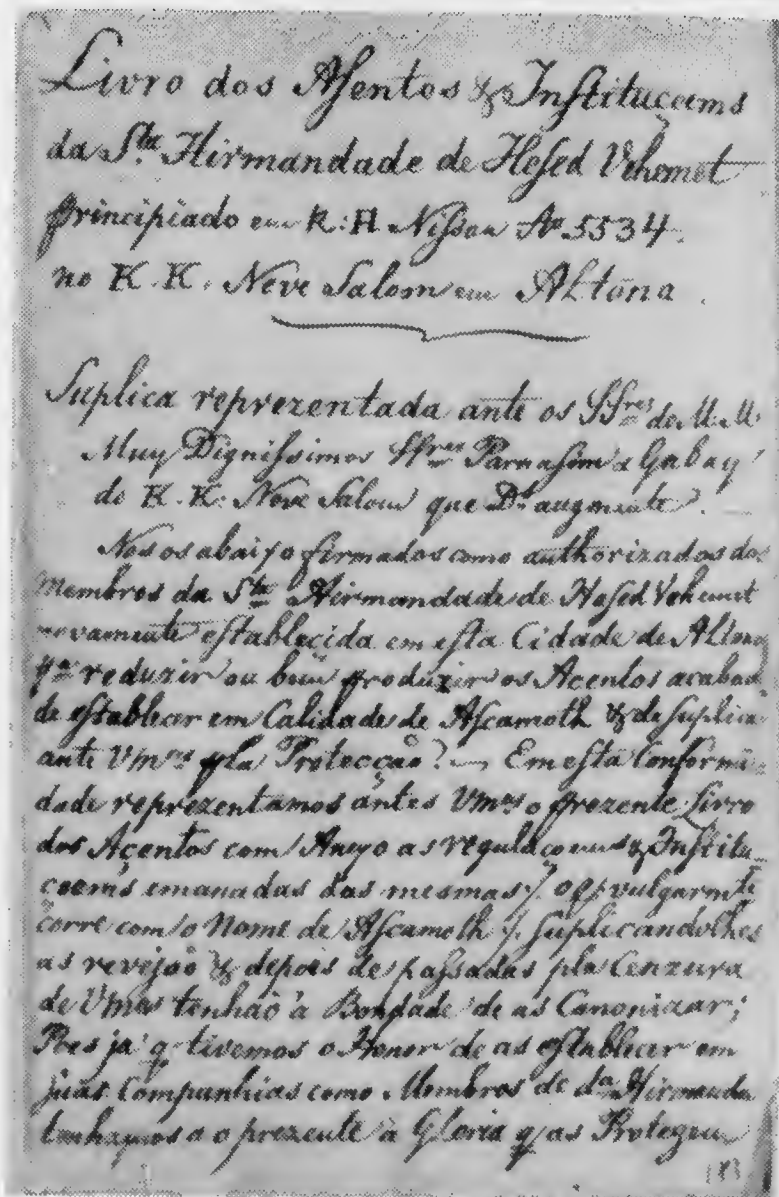 Livro dos Asentos & Instituçoems
da Sta. Hirmandade de Hesed Vehemet
principiado em R:H Nissan Ao 5534.
no K.K. Neve Salom em Altona.
Suplica reprezentada ante os SSres do M.M.
Muy Dignissimos SSres Parnasim & Gabay
do K.K. Neve Salom que Ds augmente.
Nos os abaixo firmados como authorizados dos
Membros da Sta Hirmandade de Hesed Vehemet
novamente establecida em esta Cidade de Altona
pa reduzir ou bem produzir os Acentos acabad.
de establecer em Calidade de Ascamoth & de suplicar
ante Vmces pla Protecção? Em esta Conformi=
dade reprezentamos antes Vmces o prezente Livro
dos Açentos com Anexo as regulaçoems & Institu=
coems emanadas das mesmas /. o q vulgarmte
corre com o Nome de Ascamoth /. suplicandolhes
as revejaõ & depois de passadas pla Cenzura
de Vmces tenhaõ a Bondade de as Canonizar;
Pois ja q tivemos o Honor de as establecer em
suas Companhias como Membros de da Hirmanda
tenhamos ao prezente a Gloria q as Protegem